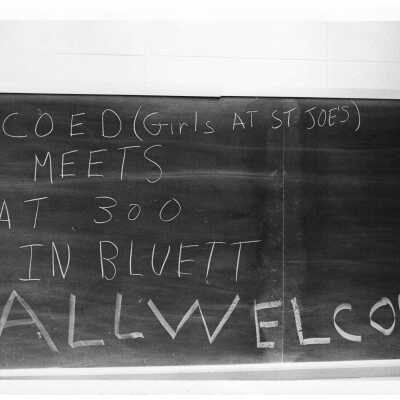 COED (Girls AT ST. JOE'S)
MEETS
AT 300
IN BLUETT
ALL WELCO